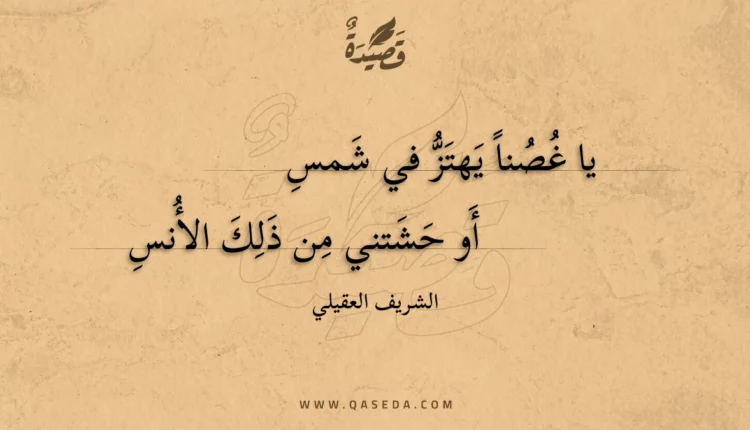 قَصِيْدَةٌ
يا غُصُناً يَهتَزُّ في شَمسِ
أَو حَشَتني مِن ذَلِكَ الأُنسِ
الشريف العقيلي
WWW.QASEDA.COM